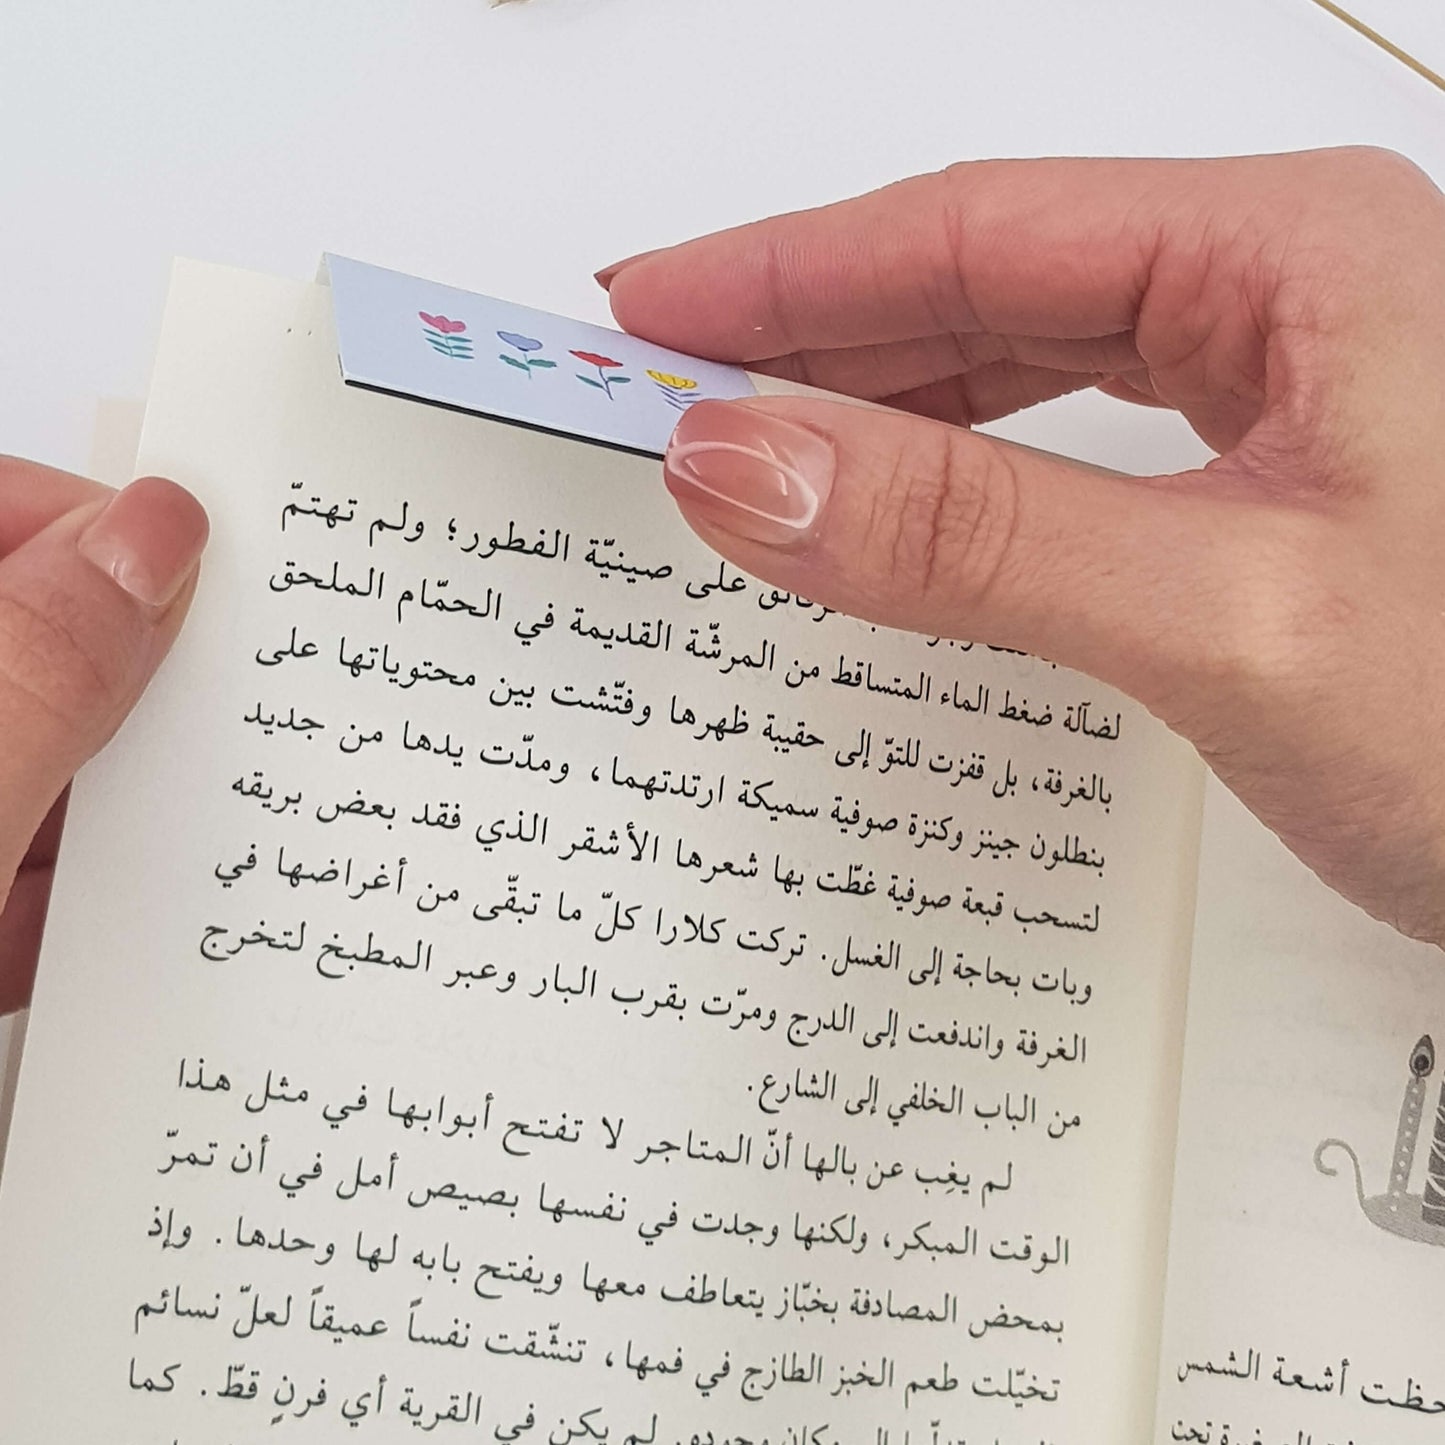 على صينيّة الفطور؛ ولم تهتمّ
لضآلة ضغط الماء المتساقط من المرشّة القديمة في الحمّام الملحق
بالغرفة، بل قفزت للتوّ إلى حقيبة ظهرها وفتّشت بين محتوياتها على
بنطلون جينز وكنزة صوفية سميكة ارتدتهما، ومدّت يدها من جديد
لتسحب قبعة صوفية غطّت بها شعرها الأشقر الذي فقد بعض بريقه
وبات بحاجة إلى الغسل. تركت كلارا كلّ ما تبقّى من أغراضها في
الغرفة واندفعت إلى الدرج ومرّت بقرب البار وعبر المطبخ لتخرج
من الباب الخلفي إلى الشارع.
لم يغِب عن بالها أنّ المتاجر لا تفتح أبوابها في مثل هذا
الوقت المبكر، ولكنها وجدت في نفسها بصيص أمل في أن تمرّ
بمحض المصادفة بخبّاز يتعاطف معها ويفتح بابه لها وحدها. وإذ
تخيّلت طعم الخبز الطازج في فمها، تنشّقت نفساً عميقاً لعلّ نسائم
لم يكن في القرية أي فرنٍ قطّ. كما
أشعة الشمس
تحت